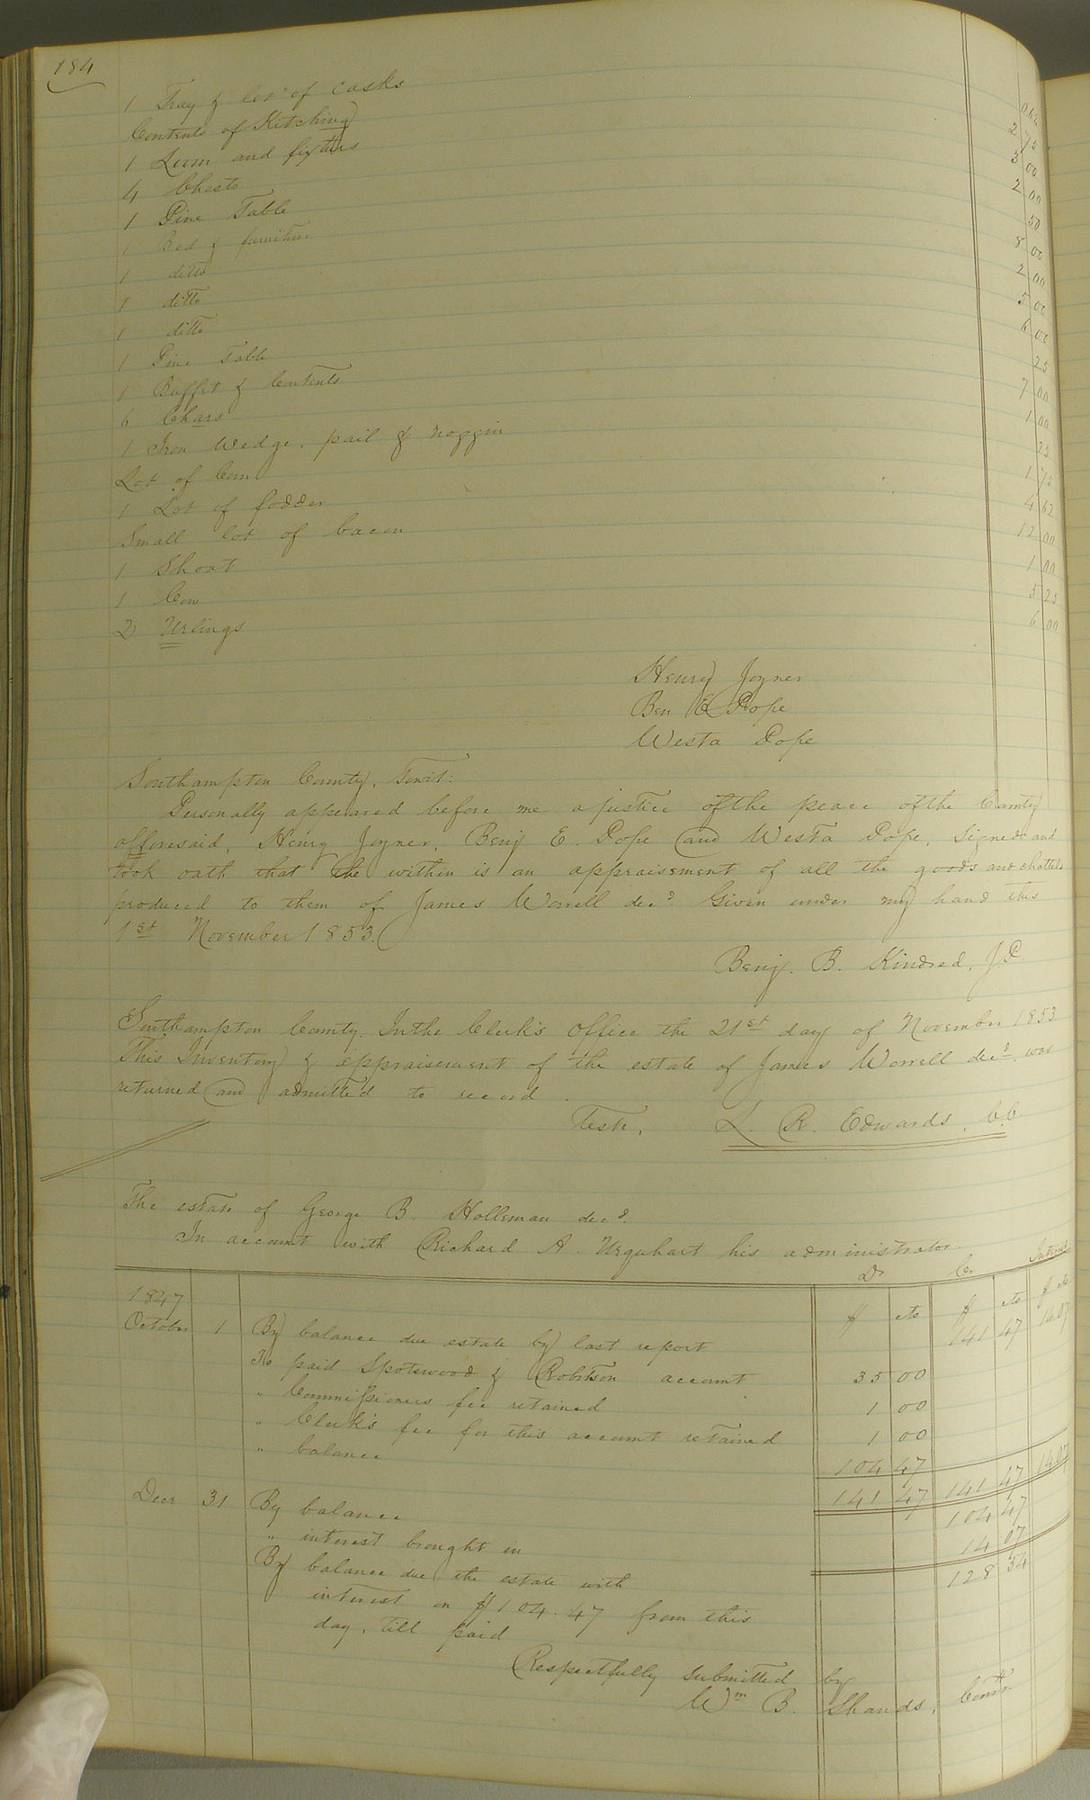 184
1 Tray & lot of casks
Contents of Kitching 2 75
1 Loom and fixtures 3 00
4 Chests 2 00
1 Pine Table 50
1 Bed & furniture 8 00
1 ditto 2 00
1 ditto 5 00
1 ditto 6 00
1 Pine Table 25
1 Buffit & Contents 7 00
6 Chars 1 00
1 Iron Wedge, pail & noggin 25
Lot of Corn 1 75
1 Lot of fodder 4 62
Small lot of bacon 12 00
1 Shoat 1 00
1 Cow 5 25
2 Urlings 6 00
Henry Joyner
Ben E Pope
Westa Pope
Southampton County, Towit:
Personally appeared before me a justice of the peace of the County
afforesaid, Henry Joyner, Benj E. Pope and Westa Pope, Signed and
took oath that the within is an appraisement of all the goods and chattels
produced to them of James Worrell decd. Given under my hand this
1st November 1853.
Benj. B. Kindred, J.P.
Southampton County. In the Clerk's Office the 21st day of November 1853
This Inventory & appraisement of the estate of James Worrell decd. was
returned and admitted to record.
Teste, L. R. Edwards, C.C.
The estate of George B. Holleman decd.
In account with Richard A. Urquhart his administrator
Dr Cr Interest
1847 $ cts $ cts $ cts
October 1 By balance due estate by last report 141 47 14.07
To paid Spotswood & Robitson account 35 00
" Commissioners fee retained 1 00
" Clerk's fee for this account retained 1 00
" balance 104 47
141 47 141 47 14.07
Decr 31 By balance 104 47
" interest brought in 14 07
By balance due the estate with 128 54
interest on $104.47 from this
day, till paid
Respectfully submitted by
Wm B. Shands, Comr.